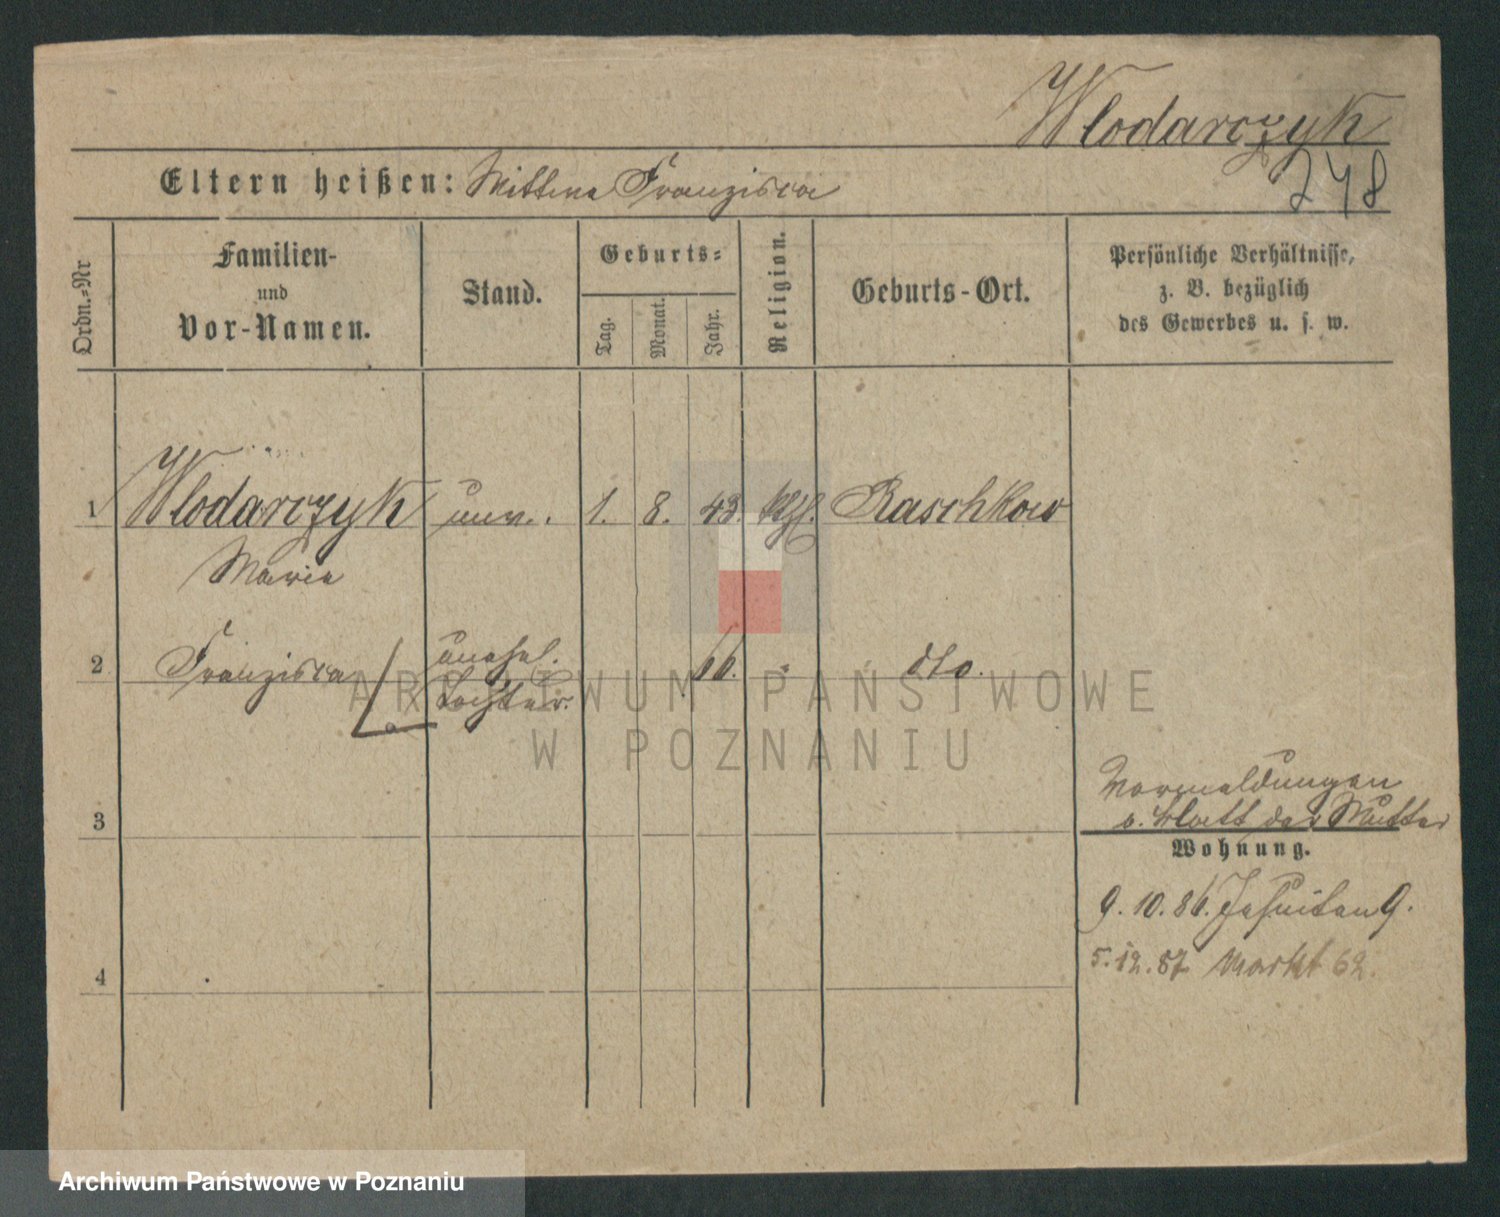 Wlodarczyk
248
Eltern heißen: Wittwe Franzisca
Ordn.-Nr
Familien-
und
Vor-Namen.
Stand.
Geburts-
Tag.
Monat.
Jahr.
Religion.
Geburts-Ort.
Persönliche Verhältnisse,
z. B. bezüglich
des Gewerbes u. s. w.
1 Wlodarczyk unv. 1. 8. 43. kthl. Raschkow
Marie
2 Franzisca unehel. 66. " dto.
Tochter.
ARCHIWUM PAŃSTWOWE
W POZNANIU
3
Vormeldungen
v. Blatt der Mutter
Wohnung.
9. 10. 86. Jesuiten 9.
5. 12. 87 Markt 62.
4
Archiwum Państwowe w Poznaniu